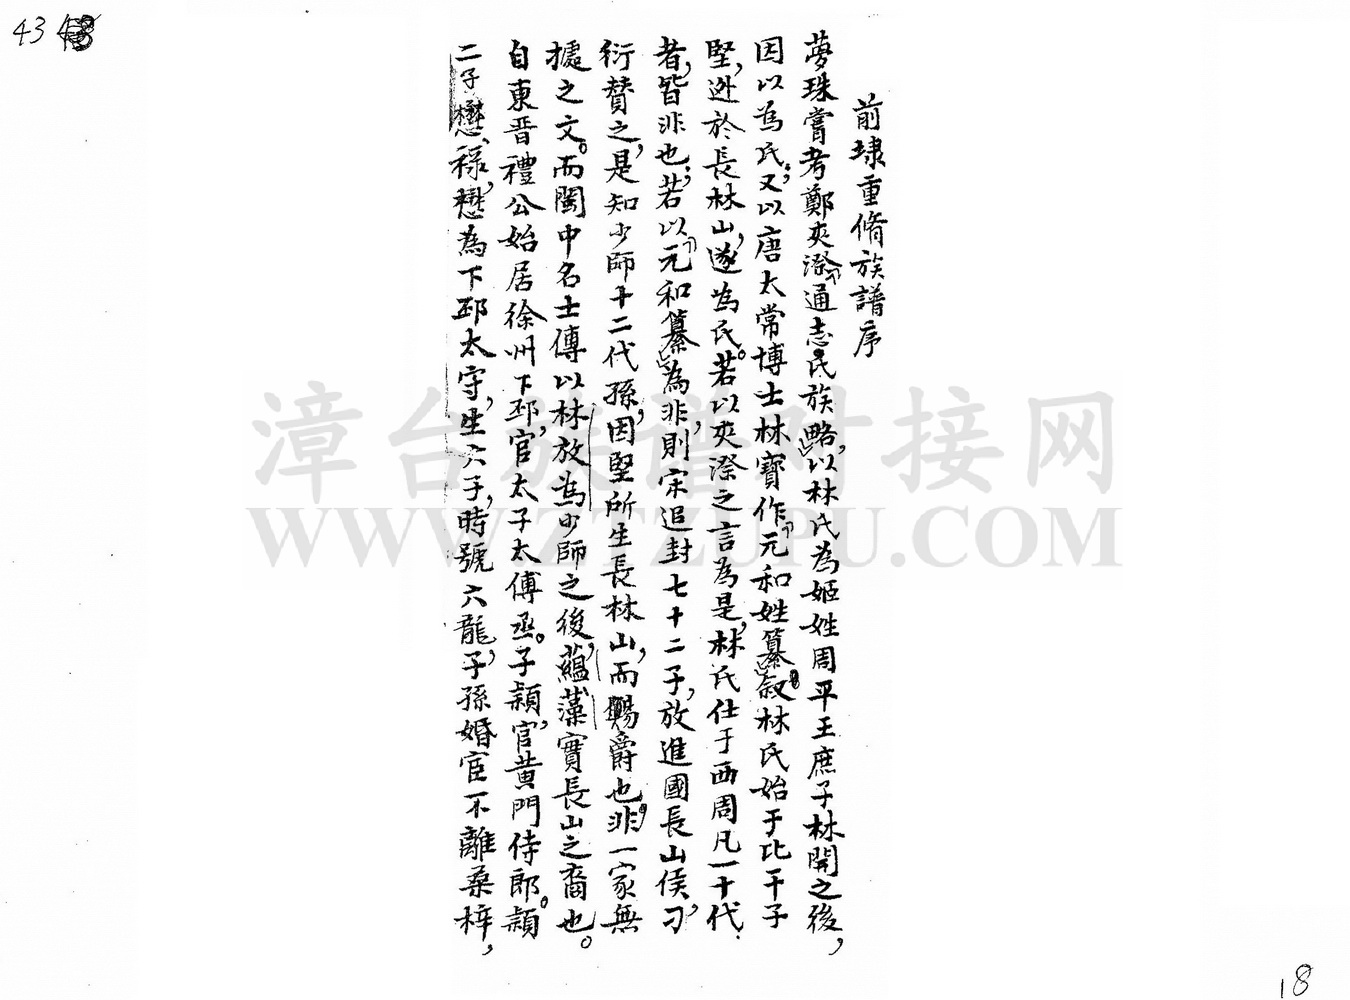 43
前埭重脩族譜序
夢珠嘗考鄭夾漈通志氏族略，以林氏為姬姓周平王庶子林開之後，
因以為氏；又以唐太常博士林寶作元和姓纂叙林氏始于比干子
堅，逃於長林山，遂為氏。若以夾漈之言為是，林氏仕于西周凡一十代
者，皆非也；若以元和纂為非，則宋追封七十二子，放進國長山侯，刁
衍贊之，是知少師十二代孫，因堅所生長林山，而賜爵也。非一家無
據之文。而閩中名士傳以林放為少師之後，蘊藻實長山之裔也。
自東晋禮公始居徐州下邳，官太子太傅丞。子穎，官黄門侍郎。穎
二子懋、祿，懋為下邳太守，生六子，時號六龍，子孫婚宦不離桑梓，
漳台族谱对接网
WWW.ZTZUPU.COM
18